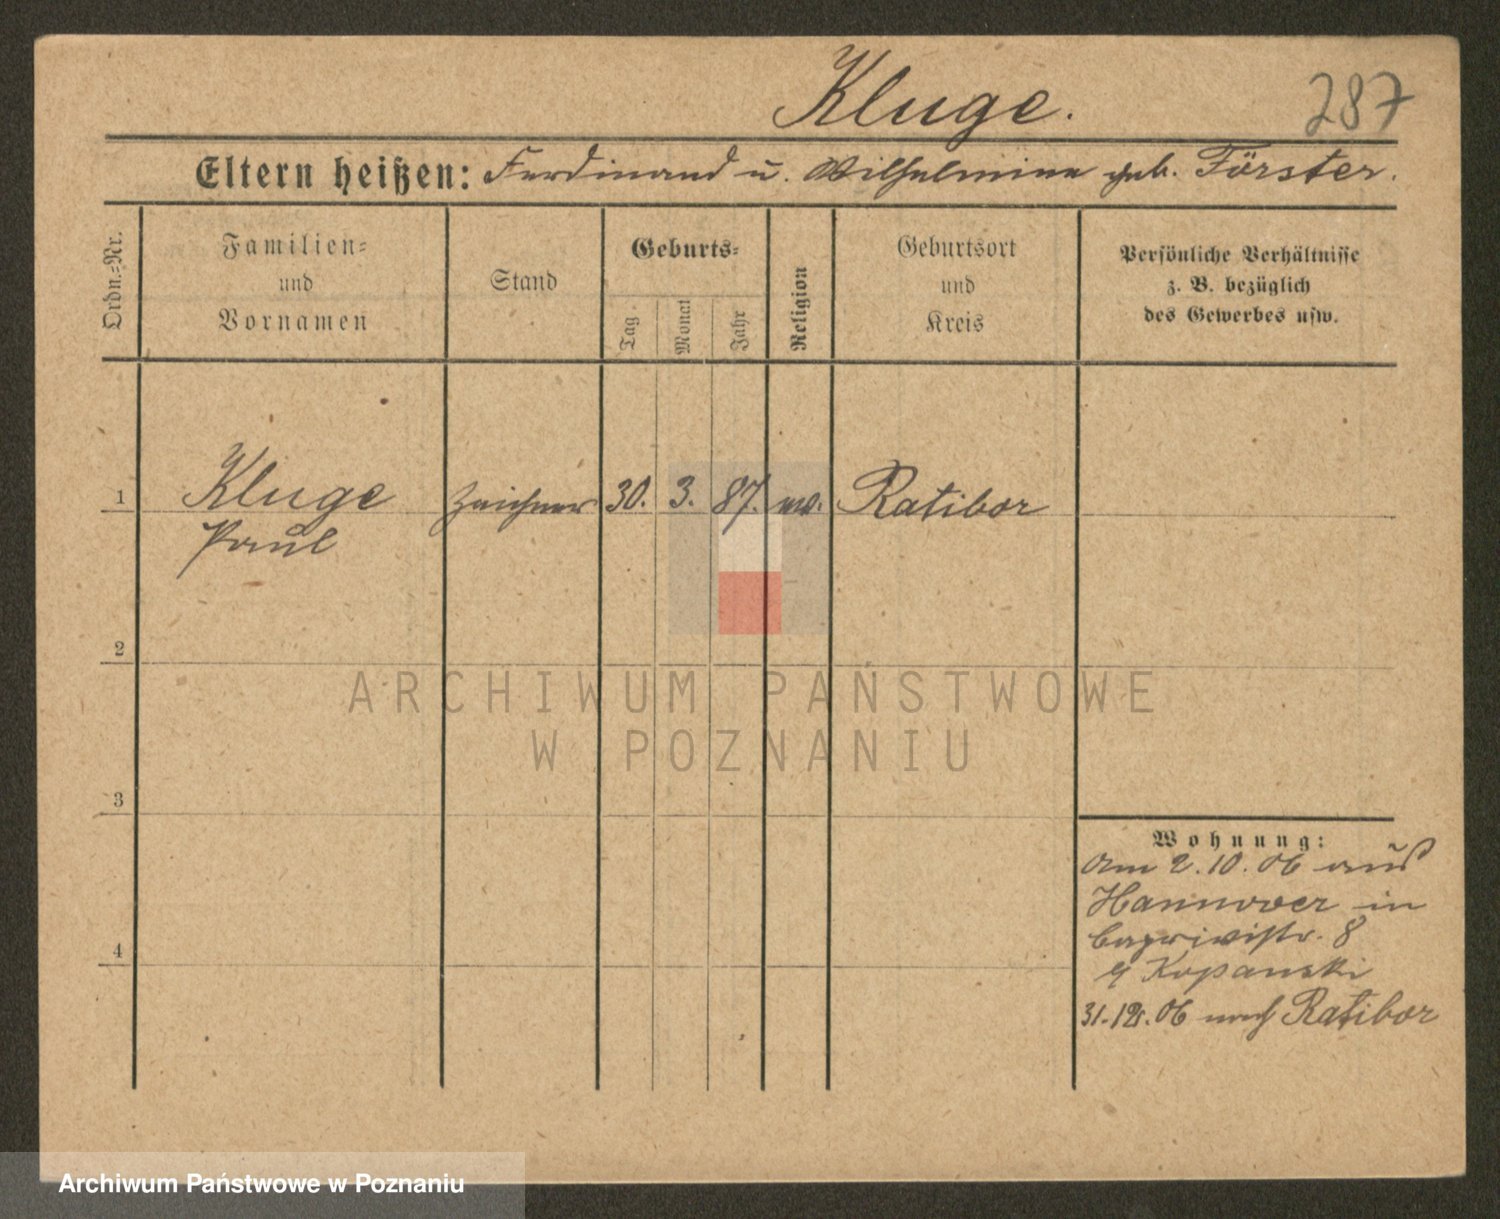 Kluge.
287
Eltern heißen: Ferdinand u. Wilhelmine geb. Förster.
Ordn.-Nr.
Familien-
und
Vornamen
Stand
Geburts-
Tag
Monat
Jahr
Religion
Geburtsort
und
Kreis
Persönliche Verhältnisse
z. B. bezüglich
des Gewerbes usw.
1 Kluge Zeichner 30. 3. 87. ev. Ratibor
Paul
2
ARCHIWUM PAŃSTWOWE
W POZNANIU
3
Wohnung:
Am 2.10.06 aus
Hannover in
Caprivistr. 8
4
Kopanski
31.12.06 nach Ratibor
Archiwum Państwowe w Poznaniu